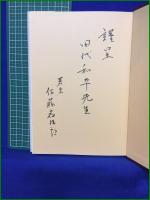 謹呈
田代和平先生
著者
佐藤